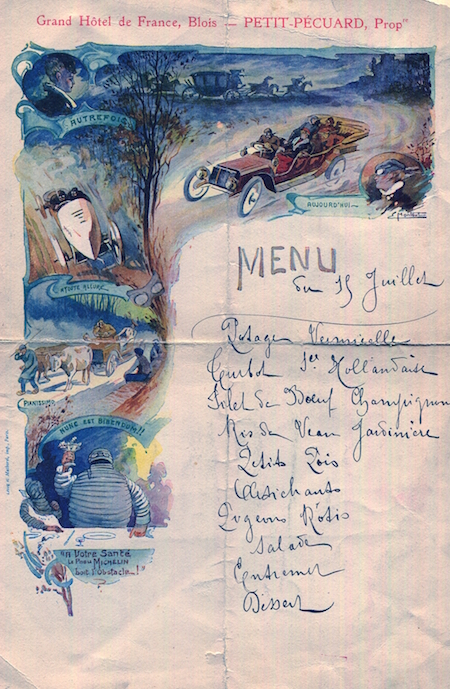 Grand Hôtel de France, Blois — PETIT-PÉCUARD, Prop"
AUTREFOIS
AUJOURD'HUI
MENU
du 15 Juillet
A TOUTE ALLURE
Potage Vermicelle
Turbot Sce Hollandaise
Filet de Bœuf Champignon
Ris de Veau Jardinière
Petits Pois
Artichauts
Pigeons Rôtis
Salade
Entremet
Dessert
PIANISSIMO
NUNC EST BIBENDUM!!
"A Votre Santé
Le Pneu MICHELIN
boit l'Obstacle!"